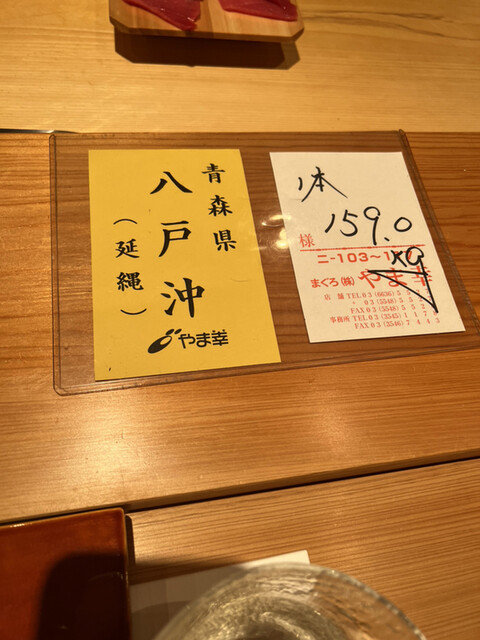 青森県
八戸沖
（延縄）
やま幸
1本
159.0
kg
様
二-103~1
まぐろ(株)やま幸
店舗 TEL 03 (6636) 5
〃 03 (5548) 5
FAX 03 (5548) 5
事務所 TEL 03 (3545) 1
FAX 03 (3546) 7 4 4 3